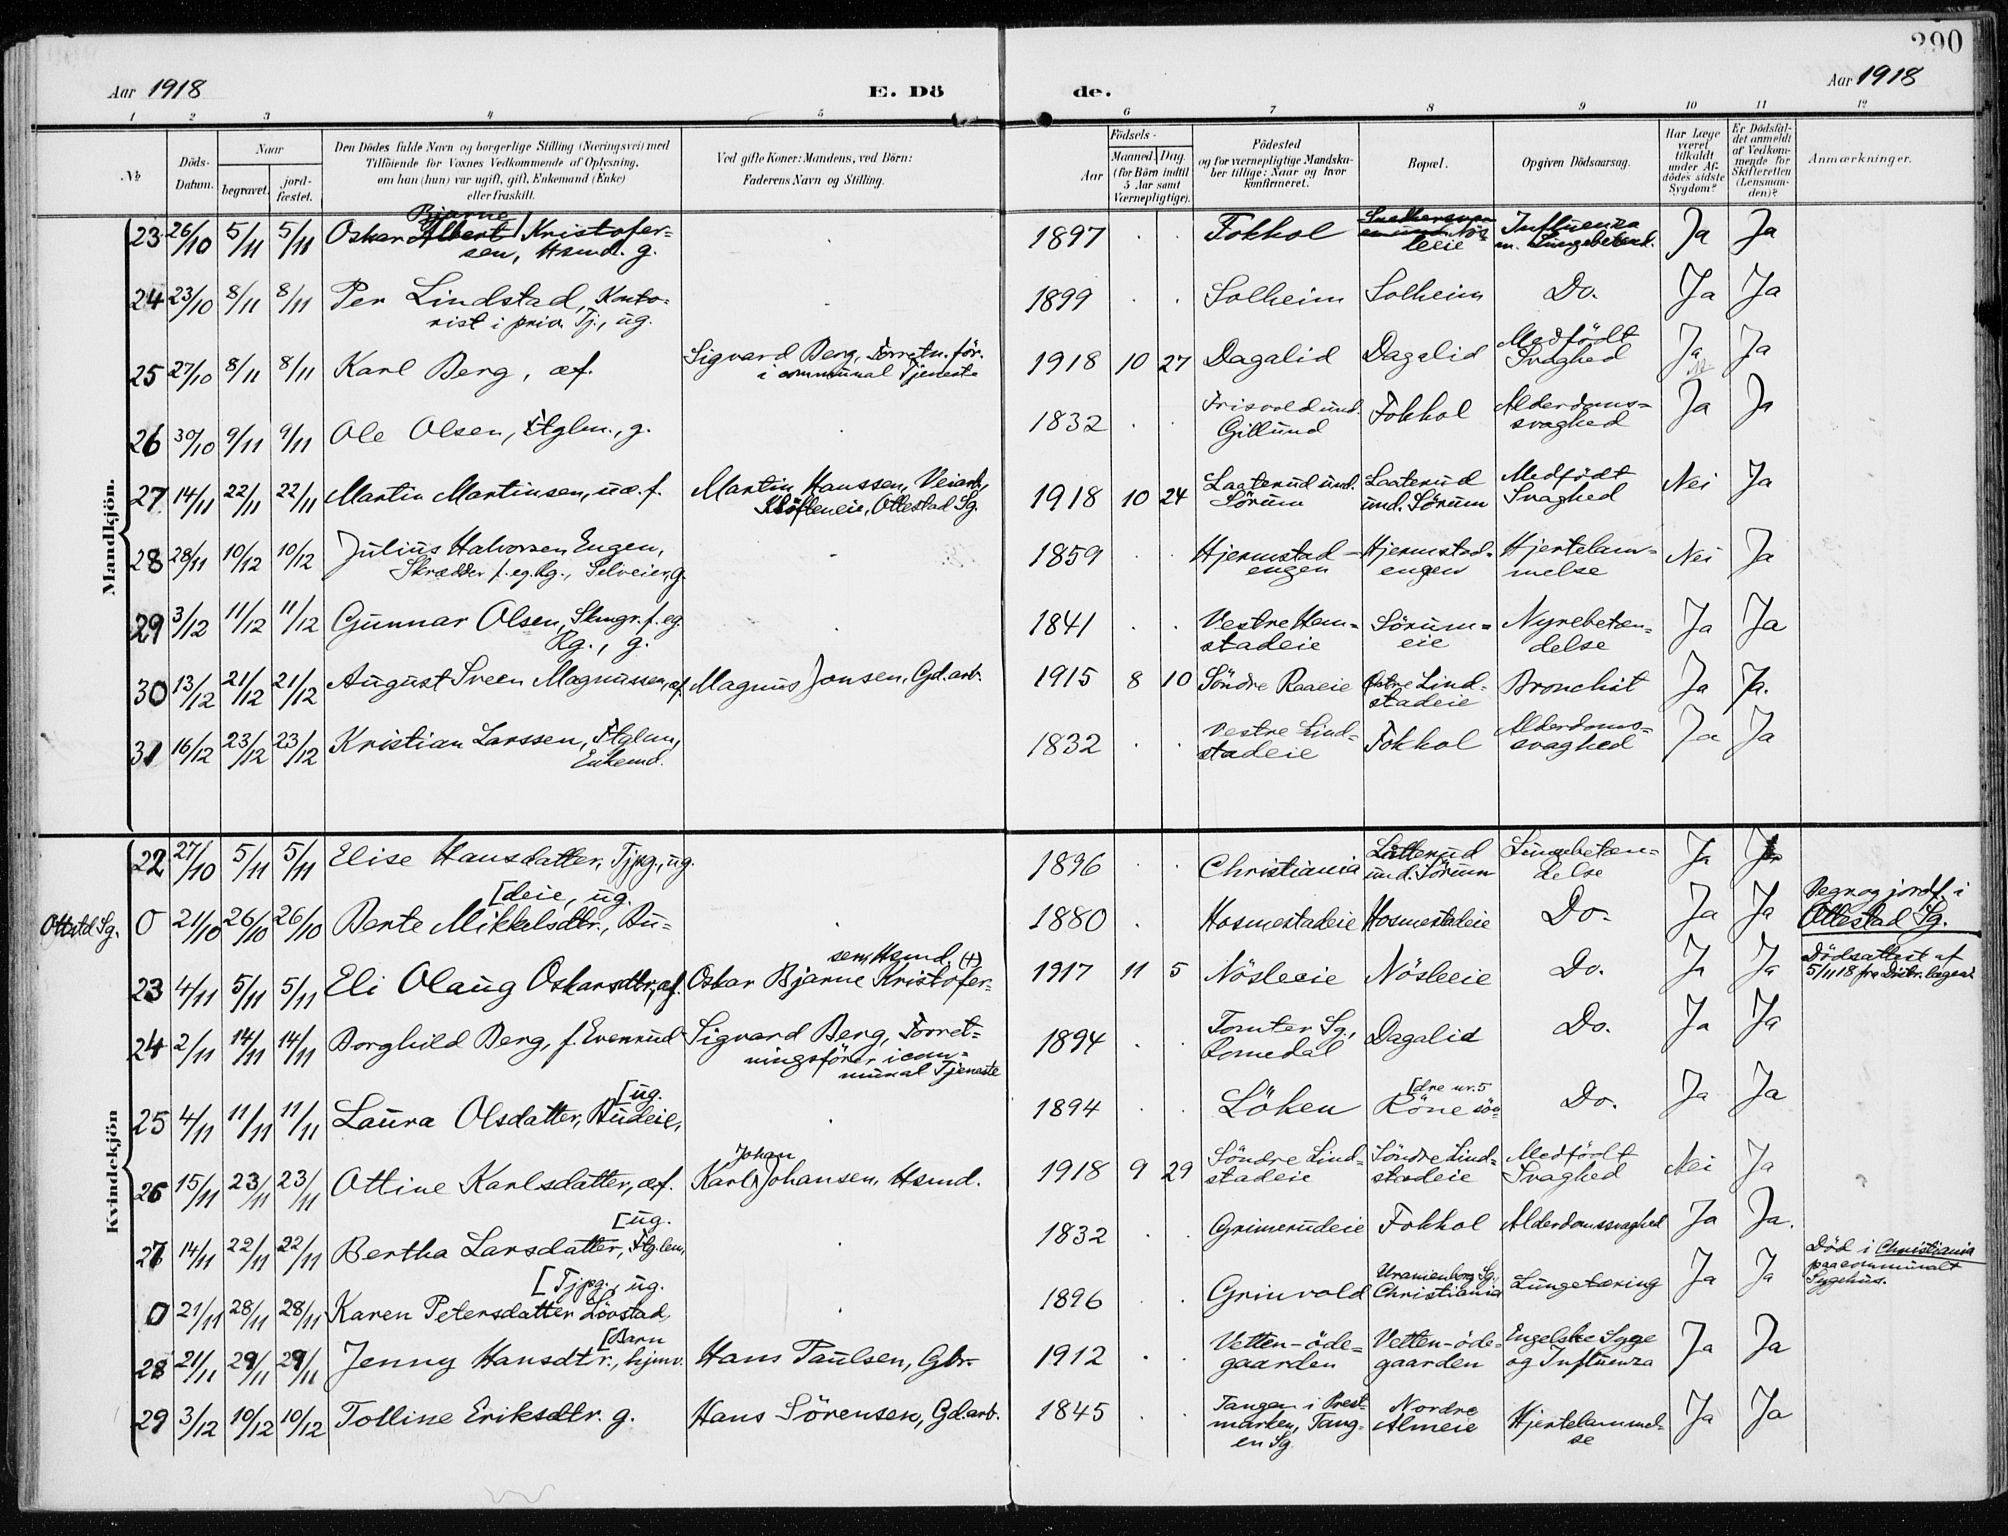 290
Aar 1918
E. Dö de.
Aar 1918
1 2 3 4 5 6 7 8 9 10 11 12
No.
Döds-Datum.
Naar
begravet.
jord-fæstet.
Den Dödes fulde Navn og borgerlige Stilling (Næringsvei) med
Tilföiende for Voxnes Vedkommende af Oplysning,
om han (hun) var ugift, gift, Enkemand (Enke)
eller fraskilt.
Ved gifte Koner: Mandens, ved Börn:
Faderens Navn og Stilling.
Födsels-
Aar
Maaned. Dag.
(for Börn indtil
5 Aar samt
Værnepligtige).
Födested
og for værnepligtige Mandska-
ber tillige: Naar og hvor
konfirmeret.
Bopæl.
Opgiven Dödsaarsag.
Har Læge
været
tilkaldt
under Af-
dödes sidste
Sygdom?
Er Dödsfal-
det anmeldt
af Vedkom-
mende for
Skifteretten
(Lensman-
den)?
Anmærkninger.
Mandkjön.
23 26/10 5/11 5/11 Oskar Albert Bjarne Kristofer-
sen, Hsmd. g. 1897 Fokhol
leeie Influenza
m. Lungebetænd. Ja Ja
24 23/10 8/11 8/11 Per Lindstad, Konto-
rist i priv. Tj., ug. 1899 Solheim Solheim Do. Ja Ja
25 27/10 8/11 8/11 Karl Berg, æf. Sigvard Berg, Forretn.för.
i communal Tjeneste 1918 10 27 Dagalid Dagalid Medfödt
Svaghed Ja Ja
26 30/10 9/11 9/11 Ole Olsen, Ftglm., g. 1832 Frisvold und.
Gillund Fokhol Alderdoms-
svaghed Ja Ja
27 14/11 22/11 22/11 Martin Martinsen, uæ.f. Martin Hanssen, Veiarb.,
Klöfteneie, Ottestad Sg. 1918 10 24 Laaterud und.
Sörum Laaterud
und. Sörum Medfödt
Svaghed Nei Ja
28 28/11 10/12 10/12 Julius Halvorsen Engen,
Skrædder f. eg. Rg., Selveier, g. 1859 Hjermstad-
engen Hjermstad-
engen Hjertelam-
melse Nei Ja
29 3/12 11/12 11/12 Gunnar Olsen, Skmgr. f. eg.
Rg., g. 1841 Vestre Hem-
stadeie Sörum-
eie Nyrebetæn-
delse Ja Ja
30 13/12 21/12 21/12 August Sveen Magnussen, æf. Magnus Jonsen, Gd.arb. 1915 8 10 Söndre Raaeie Östre Lind-
stadeie Bronchit Ja Ja.
31 16/12 23/12 23/12 Kristian Larssen, Ftglm,
Enkemd. 1832 Vestre Lind-
stadeie Fokhol Alderdoms-
svaghed Ja Ja
Kvindekjön
22 27/10 5/11 5/11 Elise Hansdatter, Tjpg., ug. 1896 Christiania Låtterud
und. Sörum Lungebetæn-
delse Ja Ja
[deie, ug.
Ottstd Sg. 0 21/10 26/10 26/10 Berte Mikkelsdtr., Bu- 1880 Hosmestadeie Hosmestadeie Do. Ja Ja Begr og jordf. i
Ottestad Sg.
sen, Hsmd. (+)
23 4/11 5/11 5/11 Eli Olaug Oskarsdtr, æf. Oskar Bjarne Kristofer- 1917 11 5 Nösleeie Nösleeie Do. Ja Ja Dödsattest af
5/11 18 fra Distr.lægen.
24 2/11 14/11 14/11 Borghild Berg, f. Evenrud Sigvard Berg, Forret-
ningsförer i com-
munal Tjeneste 1894 Tomter Sg.,
Romedal Dagalid Do. Ja Ja
[ug. [dre nr. 5
25 4/11 11/11 11/11 Laura Olsdatter, Budeie, 1894 Löken Röne sön- Do. Ja Ja
26 15/11 23/11 23/11 Ottine Karlsdatter, æf. Karl Johan Johansen, Hsmd. 1918 9 29 Söndre Lind-
stadeie Söndre Lind-
stadeie Medfödt
Svaghed Nei Ja
[ug.
27 14/11 22/11 22/11 Bertha Larsdatter, Ftg.lem, 1832 Grimerudeie Fokhol Alderdomssvaghed Ja Ja.
[Tjpg., ug.
0 21/11 28/11 28/11 Karen Petersdatter Lövstad, 1896 Grinvold Uranienborg Sg.,
Christiania Lungetæring Ja Ja Död i Christiania
paa communalt
Sygehus.
[Barn
28 21/11 29/11 29/11 Jenny Hansdtr., hjmv. Hans Paulsen, Gbr. 1912 Vetten-öde-
gaarden Vetten-öde-
gaarden Engelske Syge
og Influenza Ja Ja
29 3/12 10/12 10/12 Tolline Eriksdtr. g. Hans Sörensen, Gd.arb. 1845 Tangen i Prest-
marken, Tang-
en Sg. Nordre
Almeie Hjertelammel-
se Ja Ja